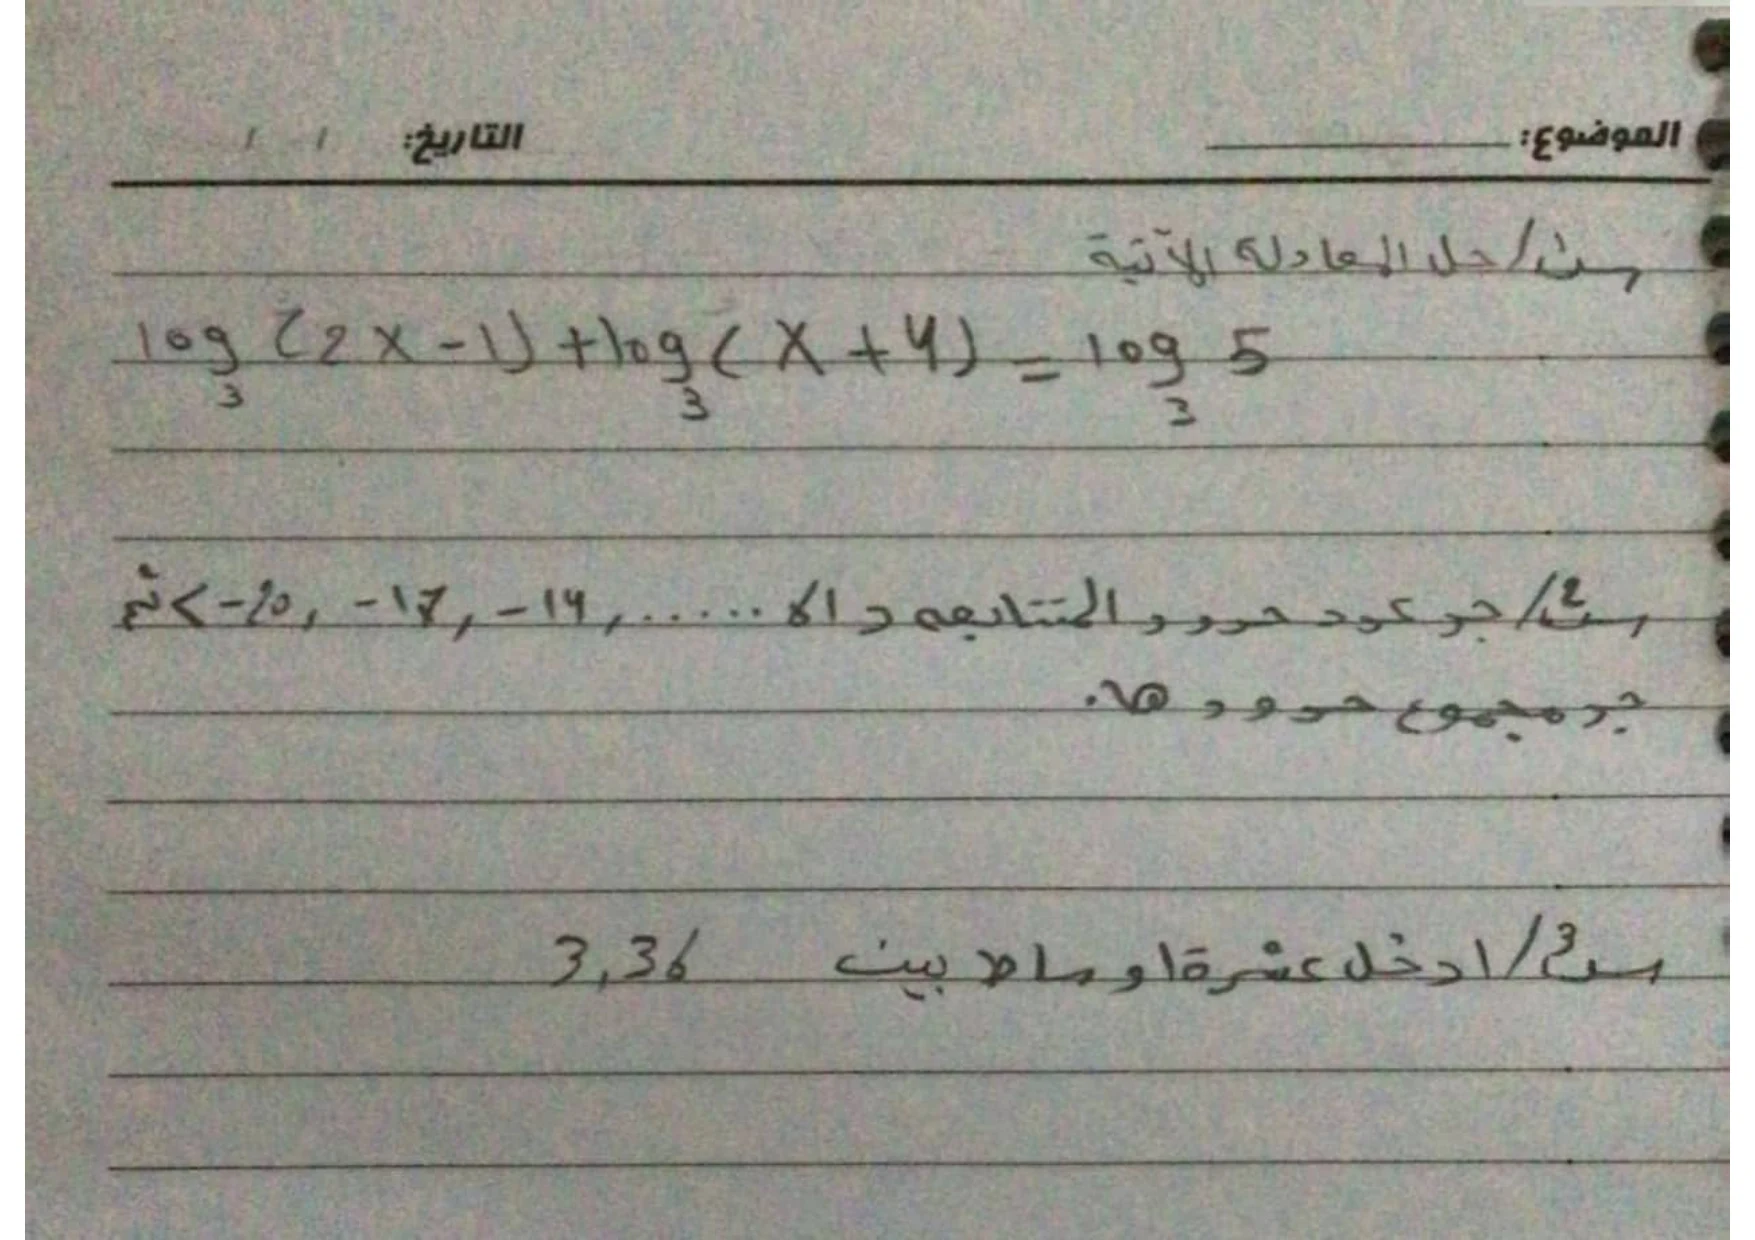 الموضوع: التاريخ: / /
س1/ حل المعادلة الآتية
log₃ (2x-1) + log₃ (x+4) = log₃ 5
س2/ جد عدد حدود المتتابعه د الا ......, -14, -17, -20> ثم
جد مجموع حدودها.
س3/ ادخل عشرة اوساط بين 3,36